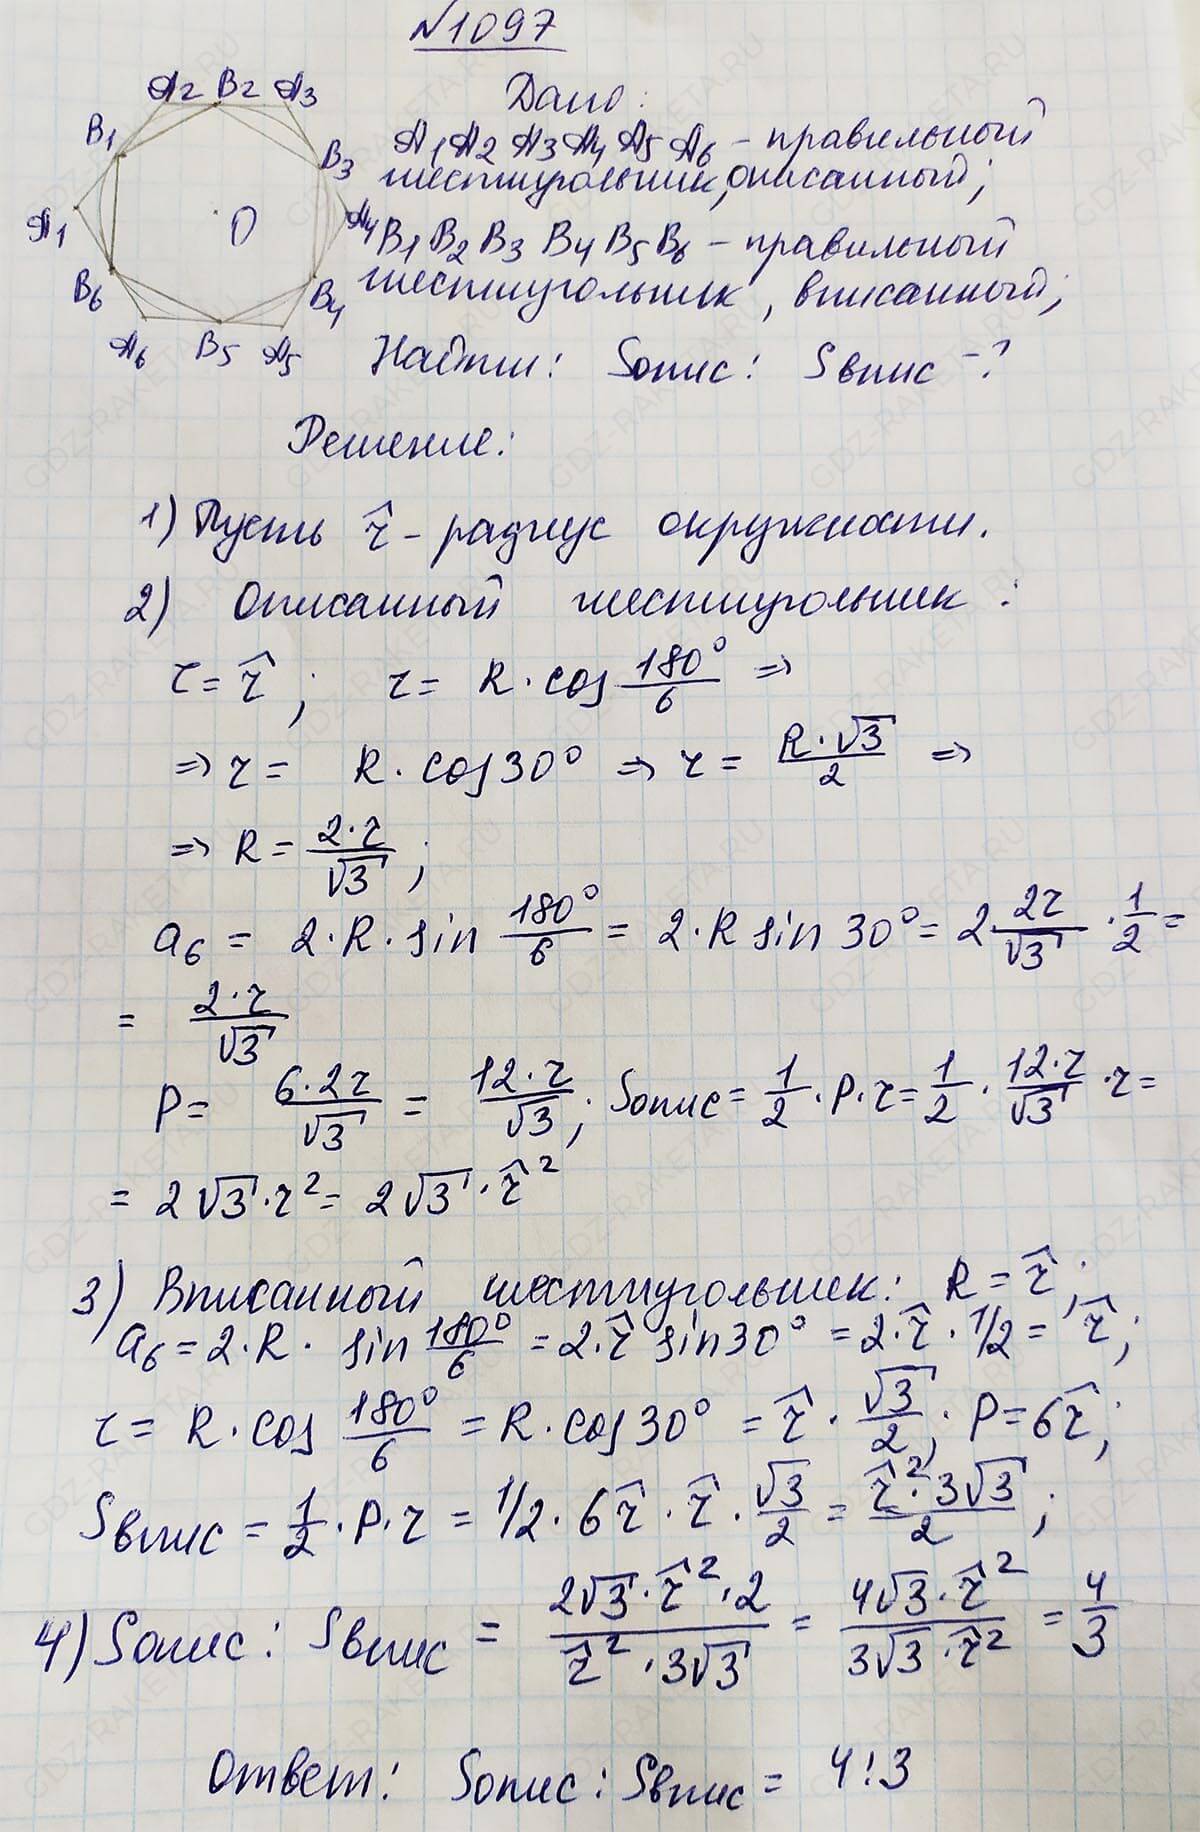 №1097
Дано:
A1A2A3A4A5A6 – правильный
шестиугольник, описанный;
B1B2B3B4B5B6 – правильный
шестиугольник, вписанный;
Найти: Sопис : Sвпис – ?
A2 B2 A3
B1 B3
A1 O A4
B6 B4
A6 B5 A5
Решение:
1) Пусть r̂ – радиус окружности.
2) Описанный шестиугольник:
r = r̂ ; r = R · cos 180°/6 =>
=> r = R · cos 30° => r = R·√3/2 =>
=> R = 2·r/√3 ;
a6 = 2·R·sin 180°/6 = 2·R sin 30° = 2 2r/√3 · 1/2 =
= 2·r/√3
P = 6·2r/√3 = 12·r/√3 ; Sопис = 1/2 · P · r = 1/2 · 12·r/√3 · r =
= 2√3 · r² = 2√3 · r̂²
3) Вписанный шестиугольник: R = r̂ ;
a6 = 2·R· sin 180°/6 = 2·r̂ sin 30° = 2·r̂ · 1/2 = r̂ ;
r = R · cos 180°/6 = R · cos 30° = r̂ · √3/2 ; P = 6r̂ ;
Sвпис = 1/2 · P · r = 1/2 · 6r̂ · r̂ · √3/2 = r̂² · 3√3/2 ;
4) Sопис : Sвпис = 2√3 · r̂² · 2/r̂² · 3√3 = 4√3 · r̂²/3√3 · r̂² = 4/3
Ответ: Sопис : Sвпис = 4:3
GDZ-RAKETA.RU